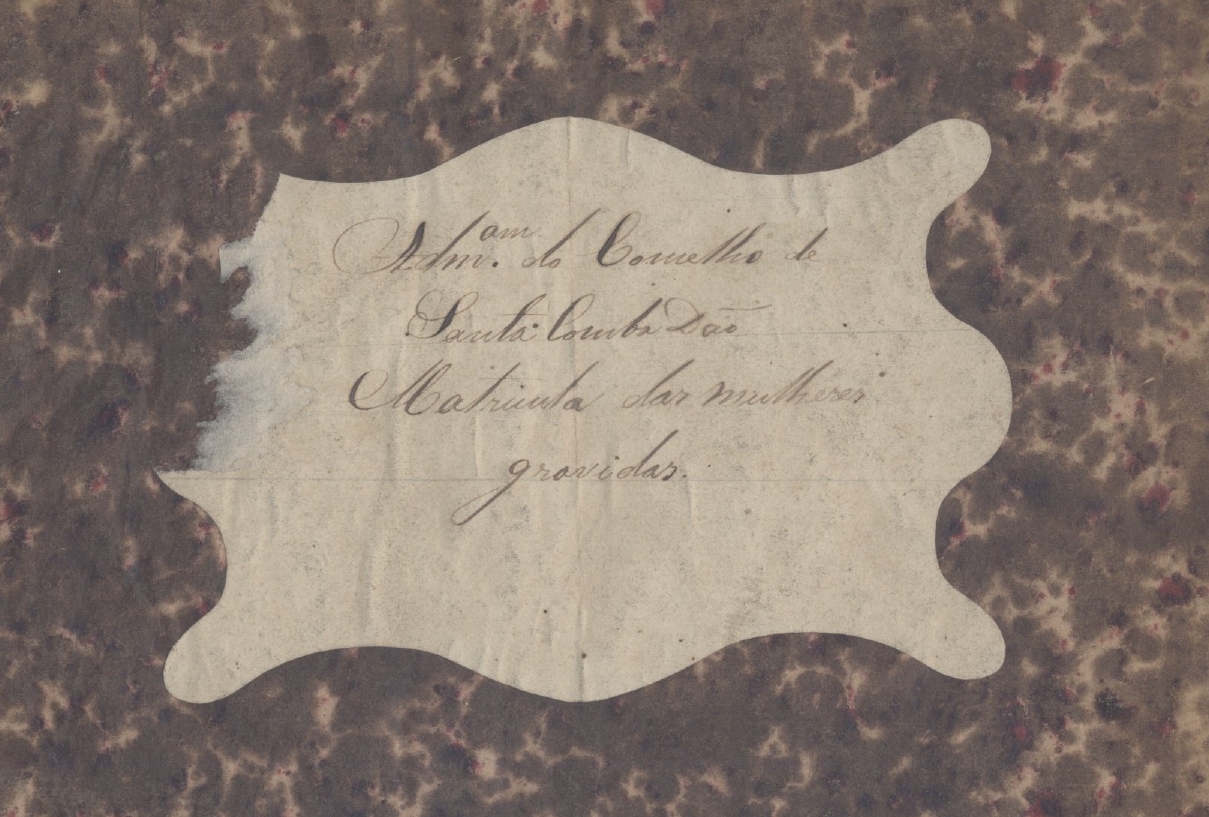 Adm.am do Concelho de
Santa Comba Dão
Matricula das mulheres
gravidas.